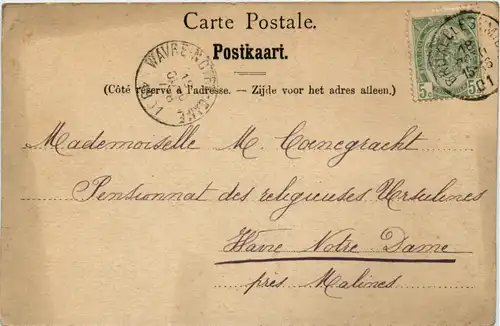 Carte Postale.
Postkaart.
(Côté réservé à l'adresse. – Zijde voor het adres alleen.)
WAVRE-NOTRE-DAME
5c 5c
Mademoiselle M. Coenegracht
Pensionnat des religieuses Ursulines
Wavre Notre Dame
près Malines